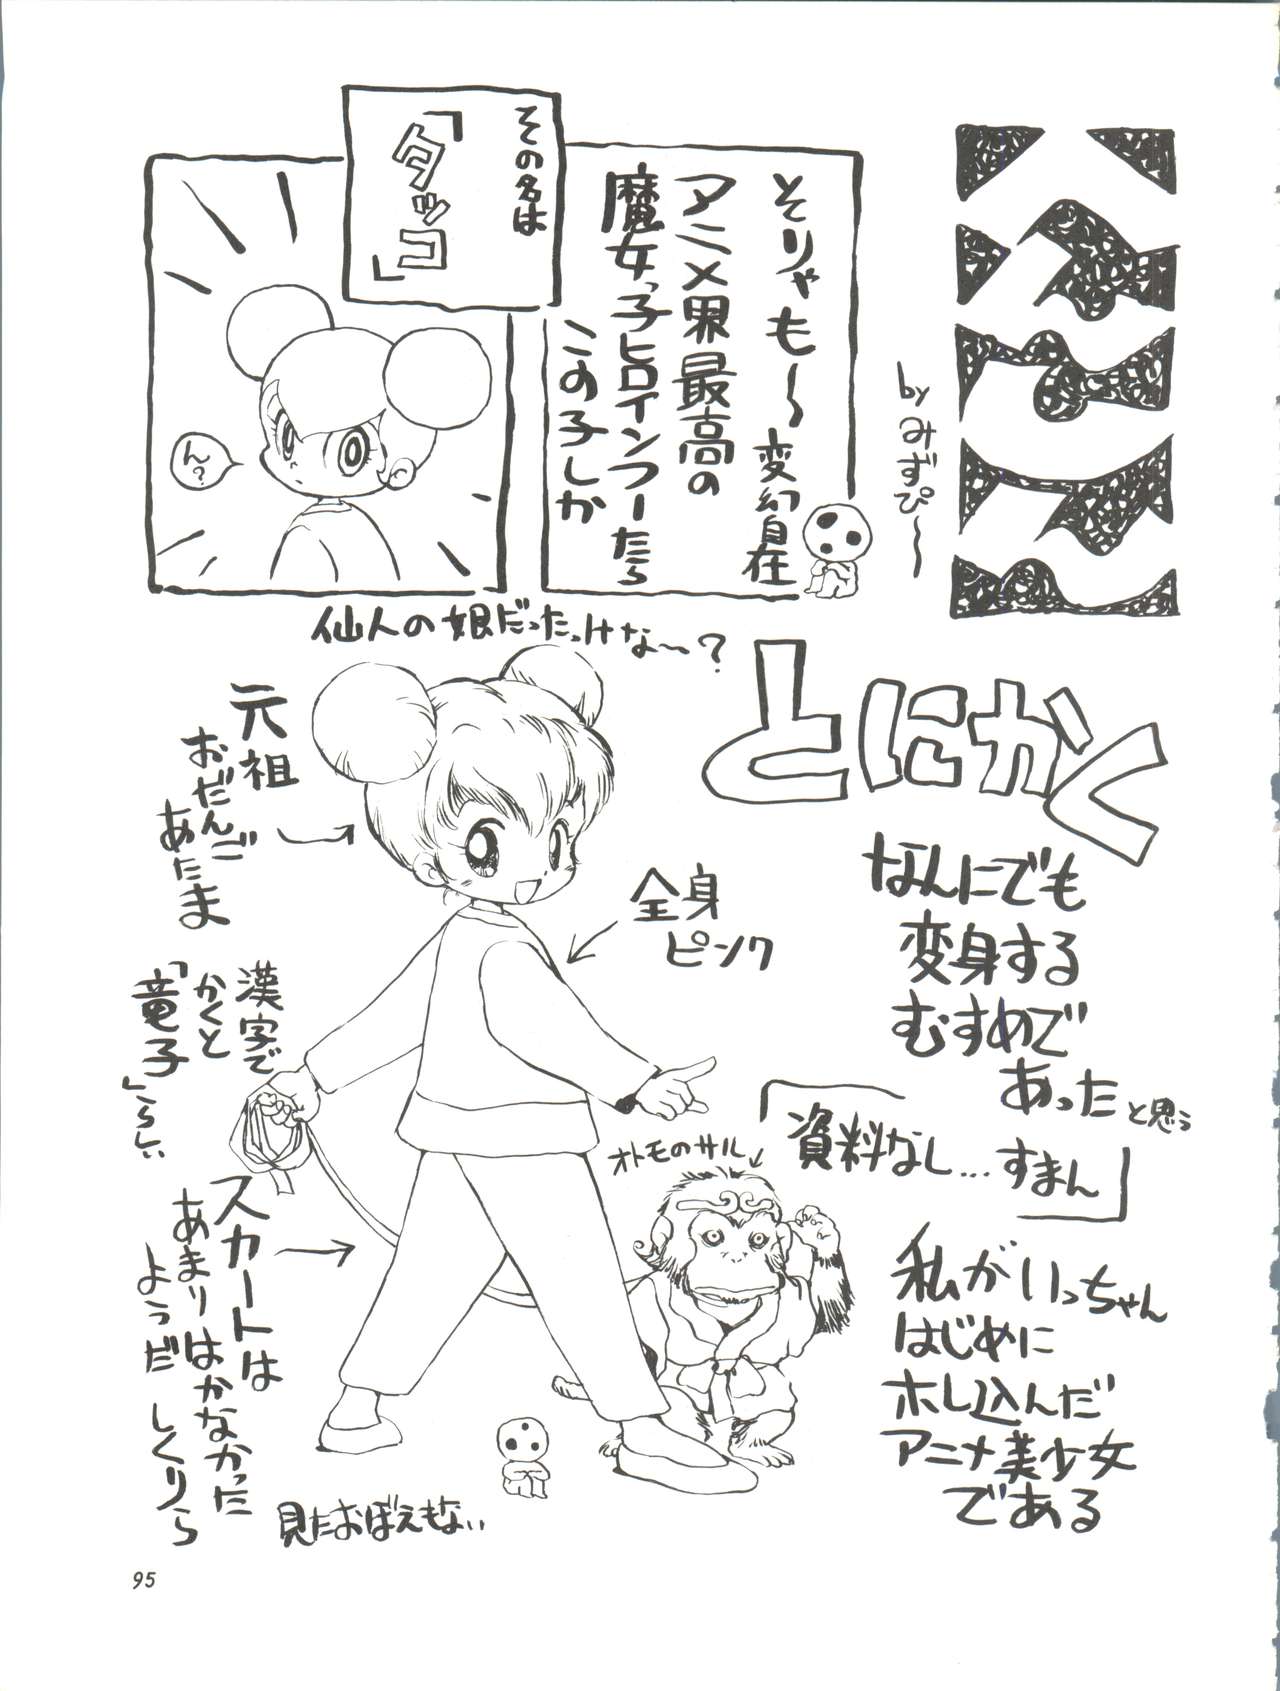 byみずぴ〜
そりゃも〜
変幻自在
アニメ界最高の
魔女っ子ヒロインつーたら
この子しか
その名は
「タッコ」
ん?
仙人の娘だったっけな〜?
とにかく
なんにでも
変身する
むすめで
あったと思う
資料なし…すまん
私がいっちゃん
はじめに
ホレ込んだ
アニメ美少女
である
元祖
おだんご
あたま
全身
ピンク
漢字で
かくと
「竜子」らしい
オトモのサル
スカートは
あまりはかなかった
ようだ しくりら
見たおぼえもない
95